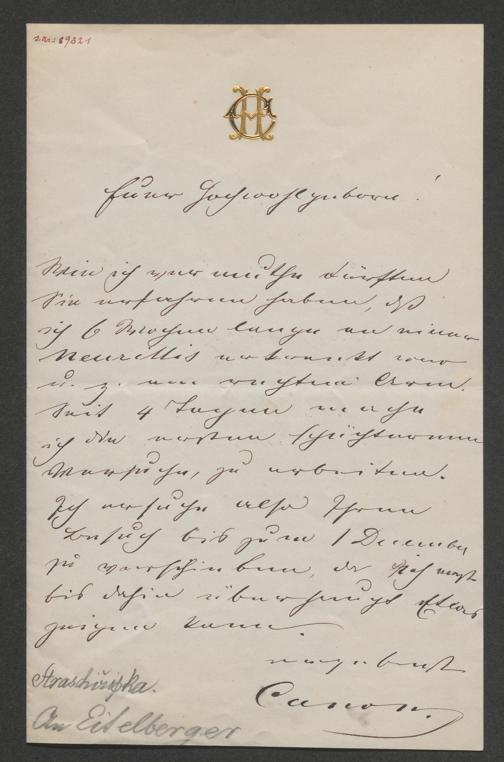 Euer Hochwohlgeboren!
Wie ich vermuthe dürften
Sie erfahren haben, daß
ich 6 Wochen lange an einer
Neurittis erkrankt war
u. z. am rechten Arm.
Seit 4 Tagen mache
ich die ersten schüchternen
Versuche, zu arbeiten.
Ich ersuche also Ihren
Besuch bis zum 1 December
zu verschieben, da ich erst
bis dahin überhaupt Etwas
zeigen kann.
ergebenst
Canon.
Straschiripka.
An Eitelberger